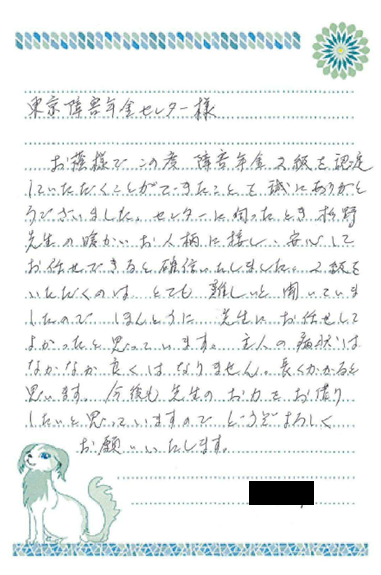 東京障害年金センター様
お蔭様でこの度 障害年金2級を認定
していただくことができましたこと誠にありがと
うございました。センターに伺ったとき 松野
先生の暖かいお人柄に接し、安心して
お任せできると確信いたしました。2級を
いただくのは、とても 難しいと聞いていま
したので ほんとうに 先生に お任せして
よかったと思っています。主人の病状は
なかなか良くはなりません。長くかかると
思います。今後も先生のお力をお借り
したいと思っていますので どうぞよろしく
お願いいたします。